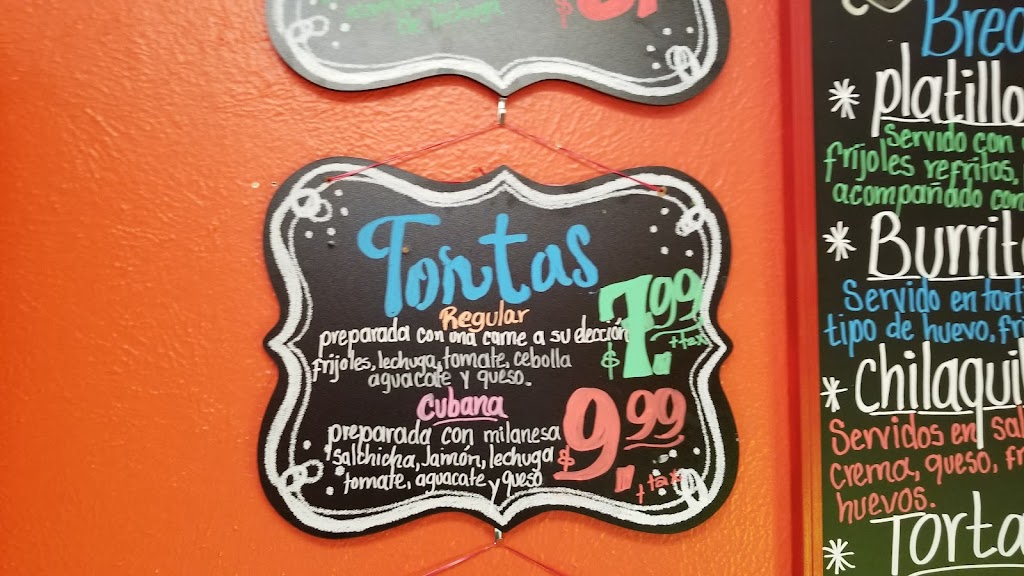 Tortas
Regular
preparada con una carne a su elección
frijoles, lechuga, tomate, cebolla
aguacate y queso.
$7.99
+tax
Cubana
preparada con milanesa
salchicha, Jamón, lechuga
tomate, aguacate y queso
$9.99
+tax
* platillo
Servido con
frijoles refritos,
acompañado con
* Burrito
Servido en
tipo de huevo,
* Chilaquil
Servidos en
crema, queso,
huevos.
* Torta